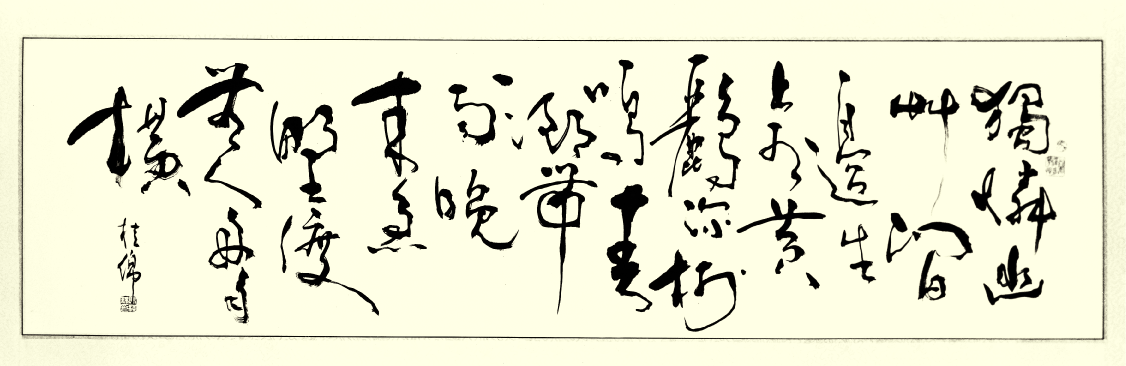 獨憐幽
草澗
邊生
上有黃
鸝深樹
鳴春
潮帶
雨晚
來急
野渡
無人舟自
橫
桂